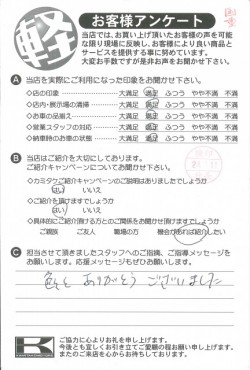 軽
お客様アンケート
当店では、お買い上げ頂いたお客様の声を可能
な限り現場に反映し、お客様により良い商品と
サービスを提供する事に努めています。
大変お手数ですが是非お声をお聞かせ下さい。
A 当店を実際にご利用になった印象をお聞かせ下さい。
◇店の印象 大満足 満足 ふつう やや不満 不満
◇店内・展示場の清掃 大満足 満足 ふつう やや不満 不満
◇お車の品揃え 大満足 満足 ふつう やや不満 不満
◇営業スタッフの対応 大満足 満足 ふつう やや不満 不満
◇納車時のお車の状態 大満足 満足 ふつう やや不満 不満
B 当店はご紹介を大切にしております。
ご紹介キャンペーンについてお聞かせ下さい。
◇カミタケご紹介キャンペーンのご説明はありましたでしょうか
はい いいえ
◇ご紹介を頂けますでしょうか
はい いいえ
◇具体的にご紹介頂ける方とのご関係をお聞かせ頂けますでしょうか
ご親族 ご友人 職場の方 機会があれば紹介したい
C 担当させて頂きましたスタッフへのご指摘、ご指導メッセージを
お願いします。応援メッセージもぜひお願いします。
色々 ありがとう ございました
ご協力に心よりお礼を申し上げます。
今後とも宜しくお引き立てご愛顧の程お願い申し上げます。
またのご来店を心からお待ちしております。